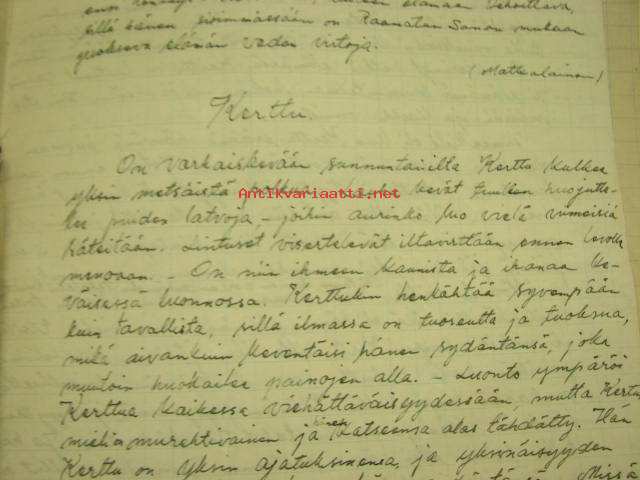 sillä hänen sisimmässään on Raamatun Sanan mukaan
juokseva elämän veden virtoja.
(Matkalainen)
Kerttu.
On varhaiskevään sunnuntai-ilta Kerttu kulkee
yksin metsäistä polkua kevät tuulen huojutel-
lee puiden latvoja - joihin aurinko luo vielä viimeisiä
säteitään. Lintuset visertelevät iltavirttään ennen levolle
menoaan. - On niin ihmeen kaunista ja ihanaa ke-
väisessä luonnossa. Kerttukin henkähtää syvempään
kuin tavallista, sillä ilmassa on tuoreutta ja tuoksua,
mikä aivankuin keventäisi hänen sydäntänsä, joka
muutoin huokailee painojen alla. - Luonto ympäröi
Kerttua kaikessa viehättäväisyydessään, mutta Kertun
mieli on murehtivainen ja hänen katseensa alas tähdätty. Hän
Kerttu on yksin ajatuksinensa, ja yksinäisyyden
Missä
Antikvariaatti.net